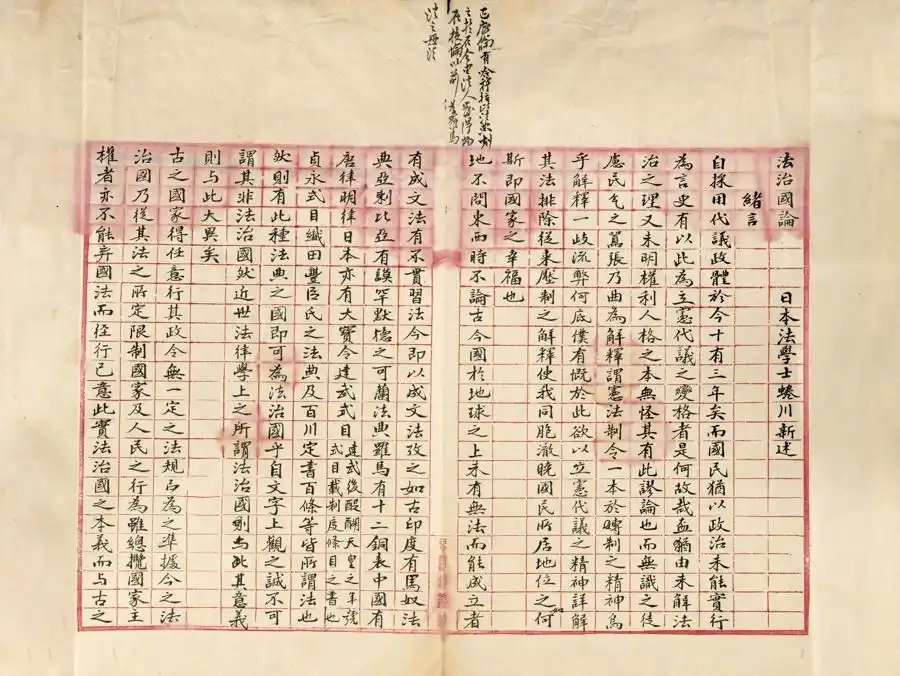 法治國論　日本法學士蜷川新述
緒言
自採用代議政體於今十有三年矣而國民猶以政治未能實行
為言更有以此為立憲代議之變格者是何故哉蓋猶由未解法
治之理又未明權利人格之本無怪其有此謬論也而無識之徒
慮民氣之囂張乃曲為解釋謂憲法制令一本於專制之精神烏
乎解釋一歧流弊何底僕有慨於此欲以立憲代議之精神詳解
其法排除從來壓制之解釋使我同胞澈曉國民所居地位之何
斯即國家之幸福也
地不問東西時不論古今國於地球之上未有無法而能成立者
有成文法有不貫習法今即以成文法攷之如古印度有馬奴法
典亞剌比亞有謨罕默德之可蘭法典羅馬有十二銅表中國有
唐律明律日本亦有大寶令建武式目
建武後醍醐天皇之年號
式目載制度條目之書也
貞永式目織田豐臣氏之法典及百川定書百條等皆所謂法也
然則有此種法典之國即可為法治國乎自文字上觀之誠不可
謂其非法治國然近世法律學上之所謂法治國則與此其意義
則與此大異矣
古之國家得任意行其政令無一定之法規以為之準據今之法
治國乃從其法之所定限制國家及人民之行為雖總攬國家主
權者亦不能弃國法而徑行己意此實法治國之本義而與古之